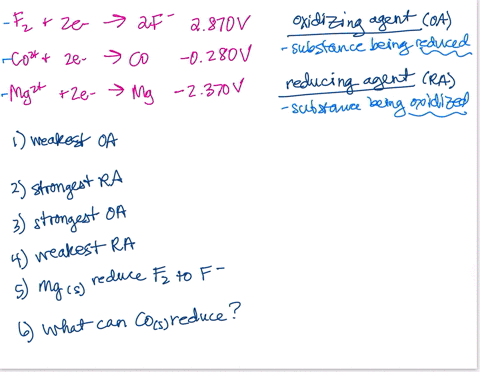 -F₂ + 2e- → 2F⁻ 2.870V
-Co²⁺ + 2e- → Co -0.280V
-Mg²⁺ +2e- → Mg -2.370V
oxidizing agent (OA)
-substance being reduced
reducing agent (RA)
-substance being oxidized
1) weakest OA
2) strongest RA
3) strongest OA
4) weakest RA
5) Mg(s) reduce F₂ to F⁻
6) what can Co(s) reduce?